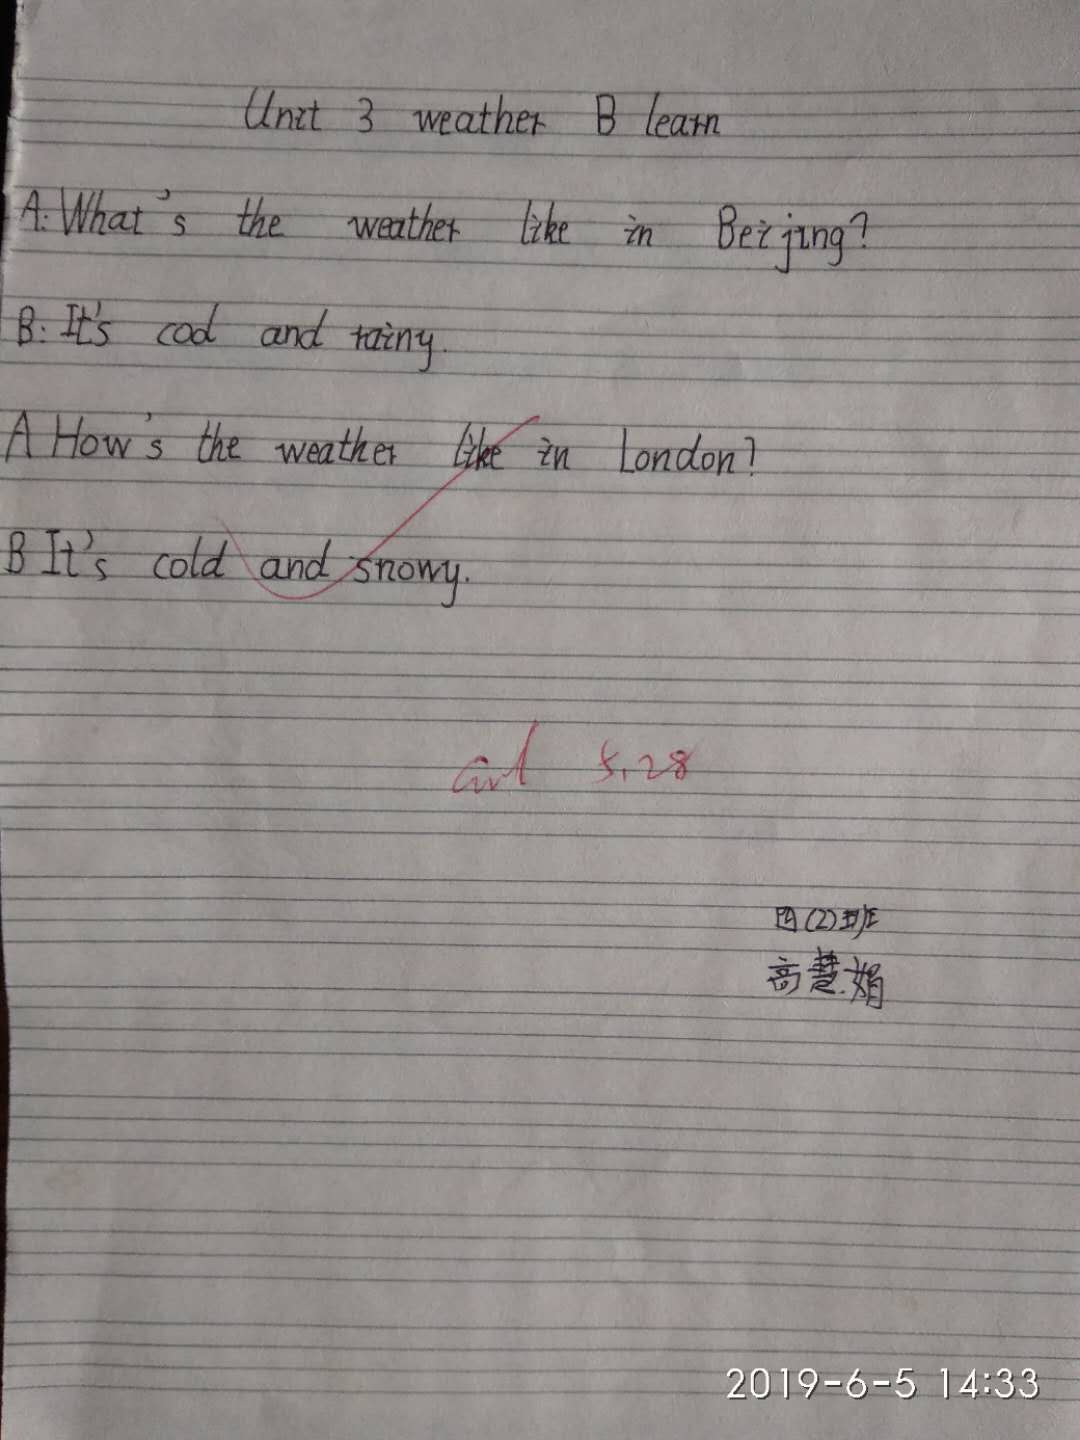 Unit 3 weather B learn
A: What's the weather like in Beijing?
B: It's cod and rainy.
A How's the weather like in London?
B It's cold and snowy.
5.28
四(2)班
高慧娟
2019-6-5 14:33